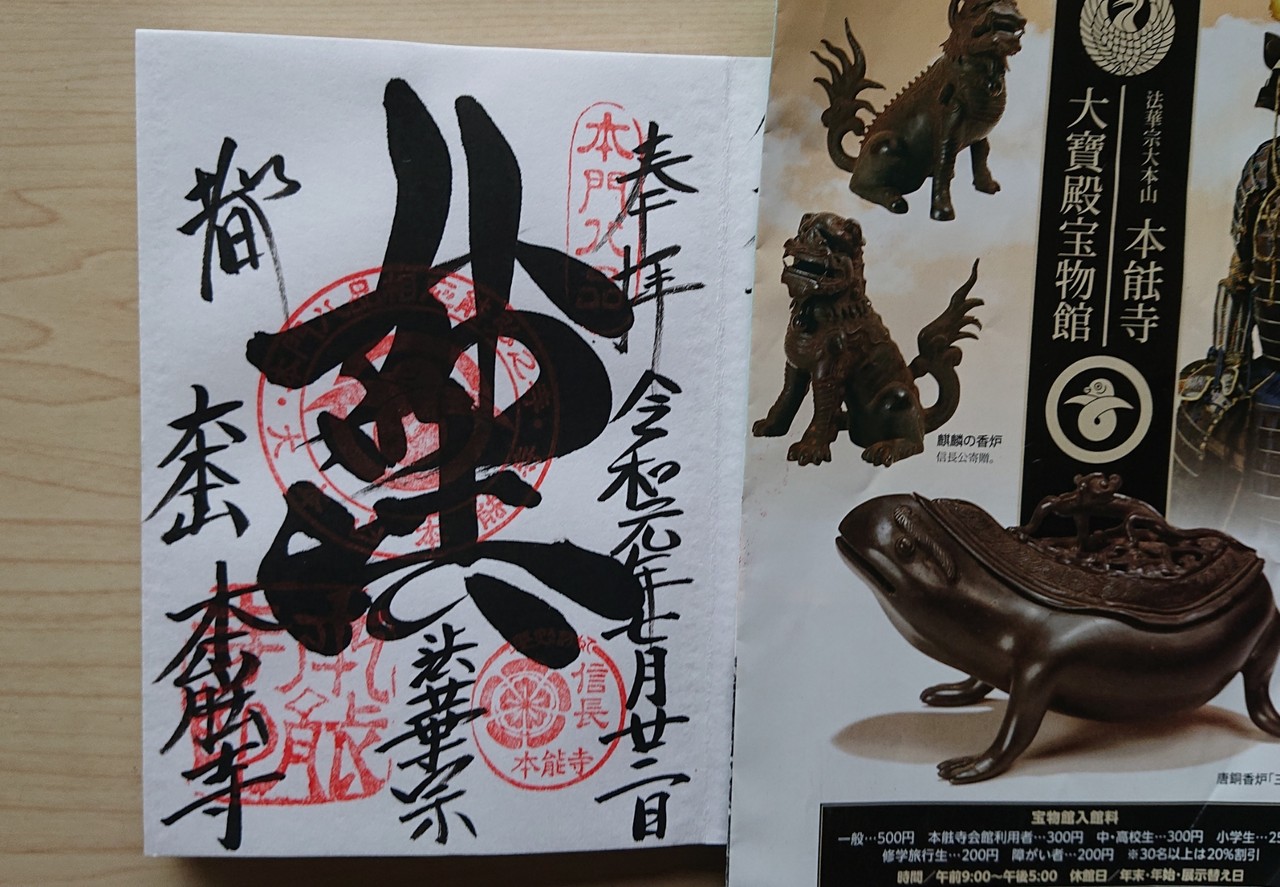 奉拝
令和元年七月廿二日
本門八品
妙法
法華宗
信長
本能寺
都
大本山
本能寺
法華宗大本山 本能寺
大寶殿宝物館
麒麟の香炉
信長公寄贈。
唐銅香炉「三
宝物館入館料
一般…500円 本能寺会館利用者…300円 中・高校生…300円 小学生…25
修学旅行生…200円 障がい者…200円 ※30名以上は20%割引
時間／午前9:00～午後5:00 休館日／年末・年始・展示替え日